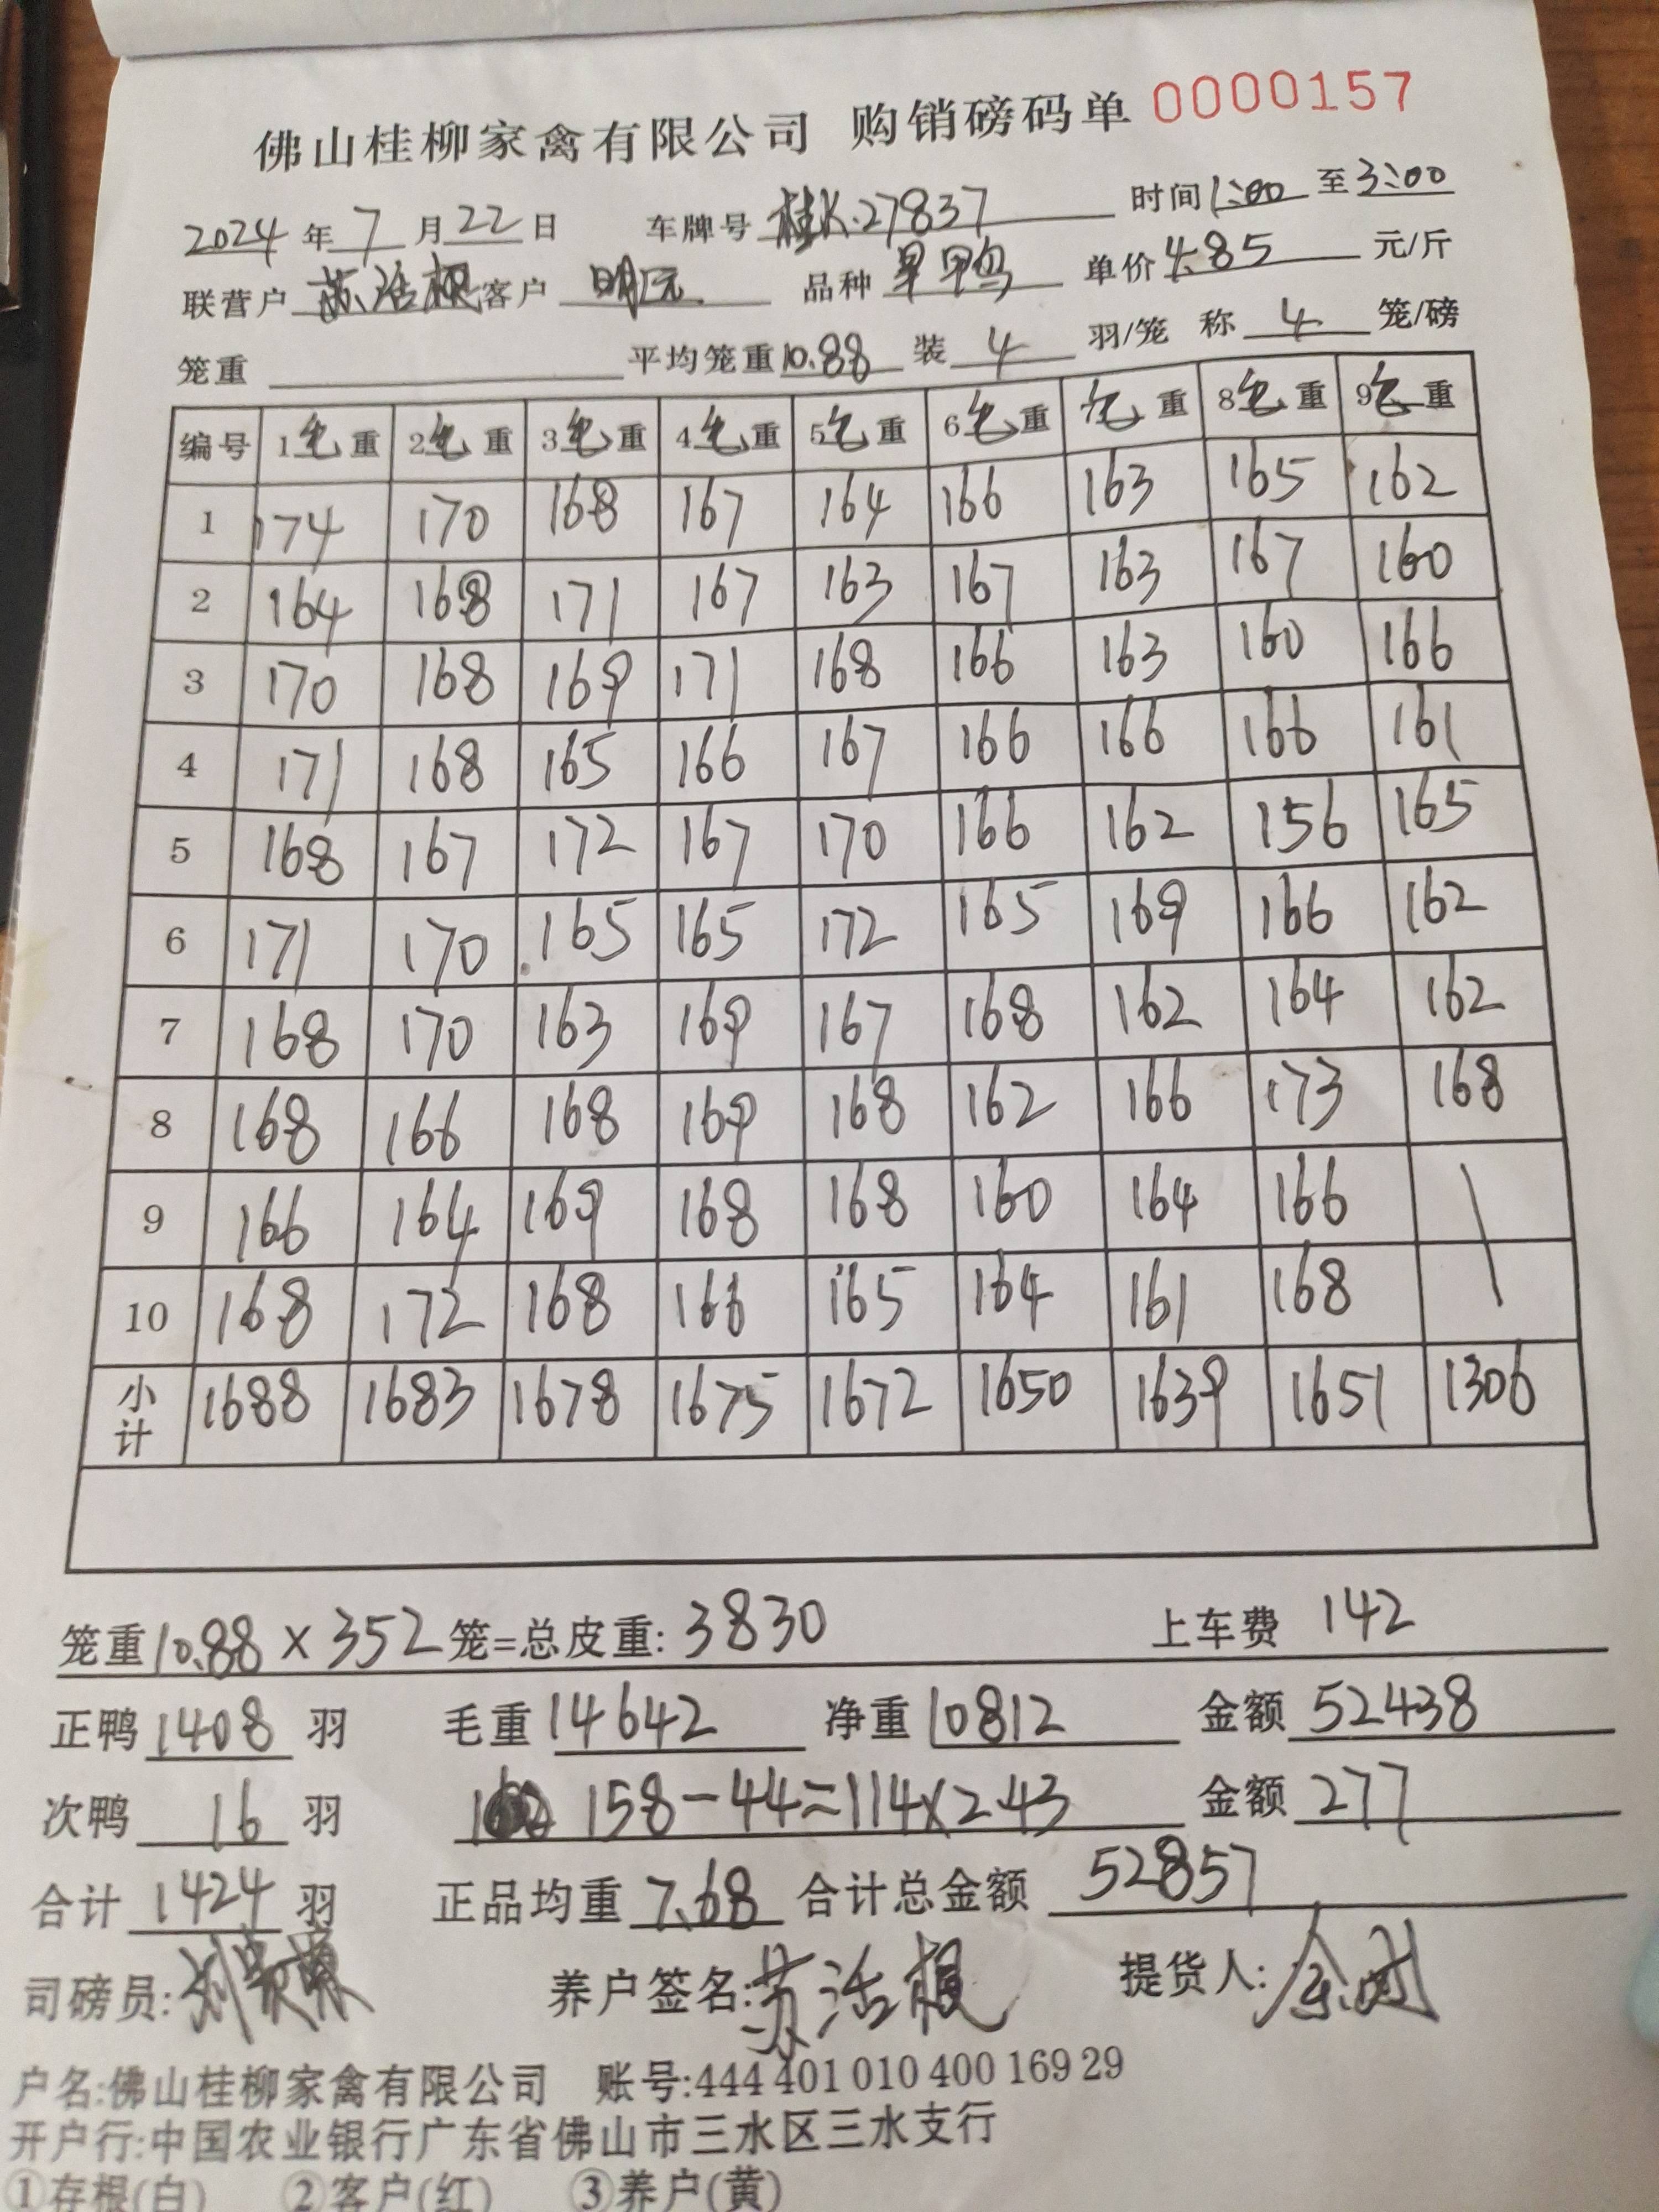 佛山桂柳家禽有限公司 购销磅码单 0000157
2024年7月22日 车牌号桂K·27837 时间1:00至3:00
联营户苏活根客户明运 品种旱甲鸟 单价4.85元/斤
笼重 平均笼重10.88装4羽/笼 称4笼/磅
编号 1毛重 2毛重 3毛重 4毛重 5毛重 6毛重 7毛重 8毛重 9毛重
1 174 170 168 167 164 166 163 165 162
2 164 168 171 167 163 167 163 167 160
3 170 168 169 171 168 166 163 160 166
4 171 168 165 166 167 166 166 166 161
5 168 167 172 167 170 166 162 156 165
6 171 170 165 165 172 165 169 166 162
7 168 170 163 169 167 168 162 164 162
8 168 166 168 169 168 162 166 173 168
9 166 164 169 168 168 160 164 166
10 168 172 168 166 165 164 161 168
小计 1688 1683 1678 1675 1672 1650 1639 1651 1306
笼重10.88×352笼=总皮重:3830 上车费 142
正鸭1408羽 毛重14642 净重10812 金额52438
次鸭16羽 158-44=114×2.43 金额277
合计1424羽 正品均重7.68 合计总金额 52857
司磅员: 养户签名:苏活根 提货人:
户名:佛山桂柳家禽有限公司 账号:444 401 010 400 169 29
开户行:中国农业银行广东省佛山市三水区三水支行
①存根(白) ②客户(红) ③养户(黄)